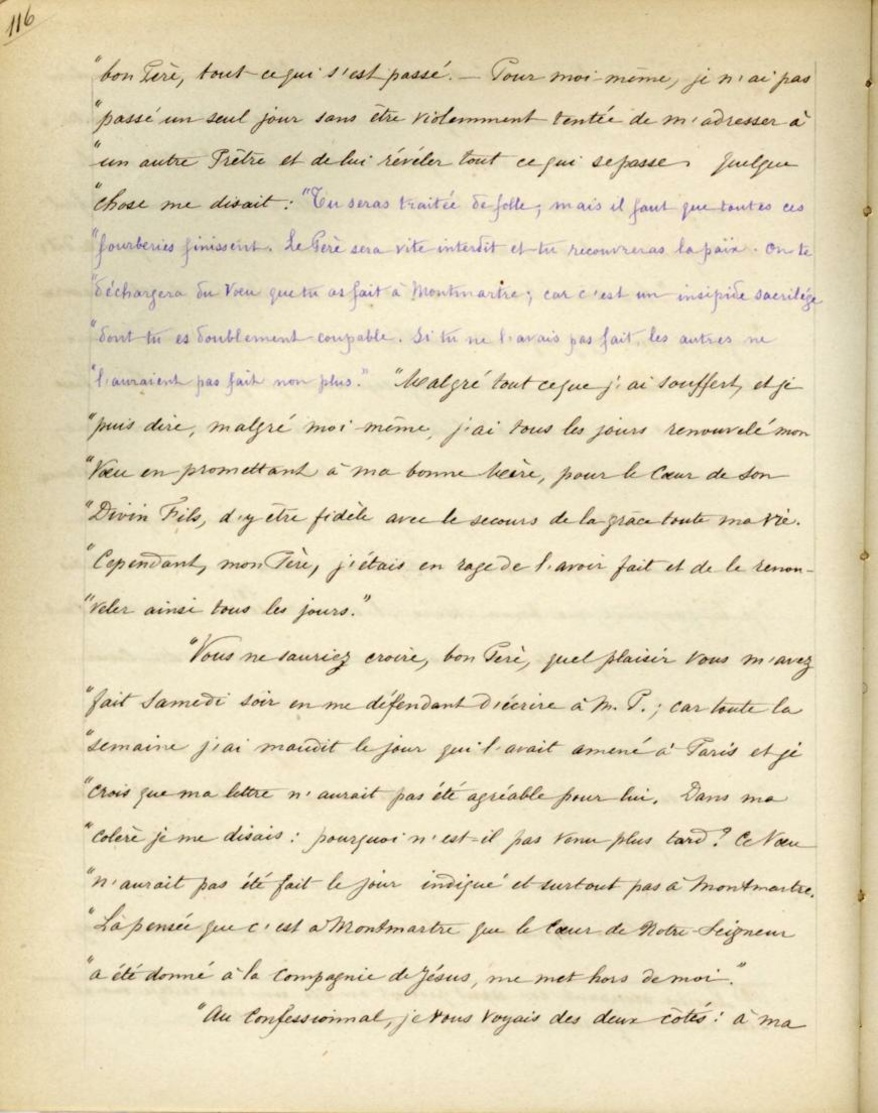 116
"bon Père, tout ce qui s'est passé. — Pour moi-même, je n'ai pas
"passé un seul jour sans être violemment tentée de m'adresser à
"un autre Prêtre et de lui révéler tout ce qui se passe. Quelque
"chose me disait : "Tu seras traitée de folle ; mais il faut que toutes ces
"fourberies finissent. Le Père sera vite interdit et tu recouvreras la paix. On te
"déchargera du Vœu que tu as fait à Montmartre ; car c'est un insipide sacrilége
"dont tu es doublement coupable. Si tu ne l'avais pas fait, les autres ne
"l'auraient pas fait non plus." "Malgré tout ce que j'ai souffert, et je
"puis dire, malgré moi-même, j'ai tous les jours renouvelé mon
"Vœu en promettant à ma bonne Mère, pour le Cœur de son
"Divin Fils, d'y être fidèle avec le secours de la grâce toute ma vie.
"Cependant, mon Père, j'étais en rage de l'avoir fait et de le renou-
"veler ainsi tous les jours."
"Vous ne sauriez croire, bon Père, quel plaisir vous m'avez
"fait Samedi soir en me défendant d'écrire à M. P. ; car toute la
"semaine j'ai maudit le jour qui l'avait amené à Paris et je
"crois que ma lettre n'aurait pas été agréable pour lui. Dans ma
"colère je me disais : pourquoi n'est-il pas venu plus tard ? Ce Vœu
"n'aurait pas été fait le jour indiqué et surtout pas à Montmartre.
"La pensée que c'est à Montmartre que le Cœur de Notre-Seigneur
"a été donné à la Compagnie de Jésus, me met hors de moi."
"Au Confessionnal, je vous voyais des deux côtés : à ma